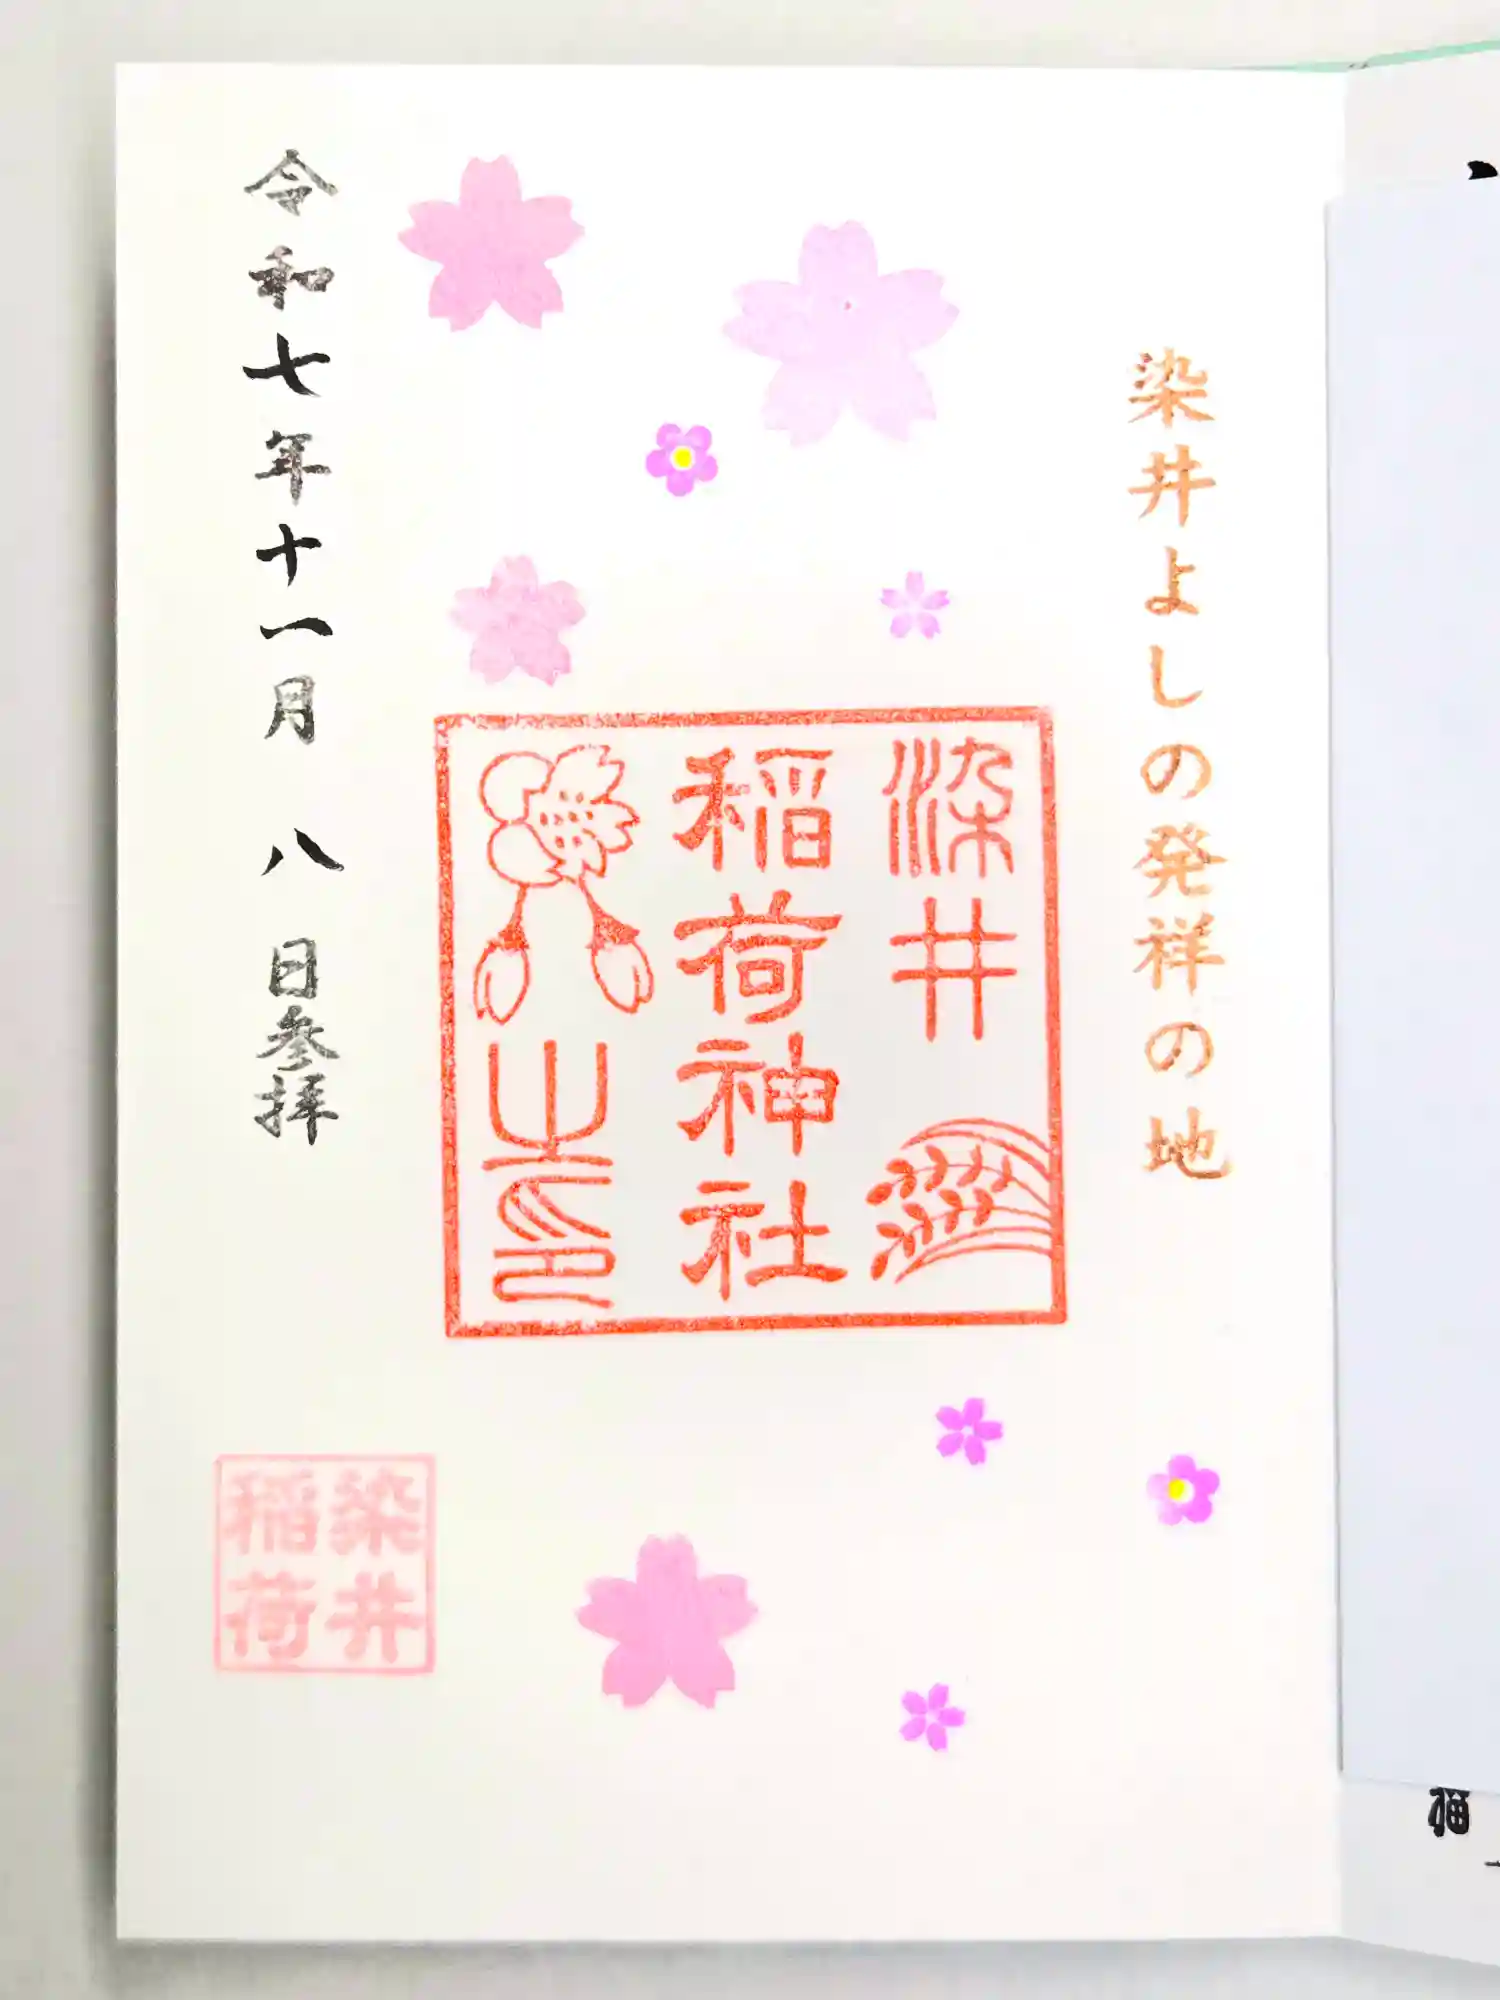 染井よしの発祥の地
染井
稲荷神社
之印
令和七年十一月 八 日参拝
染井
稲荷